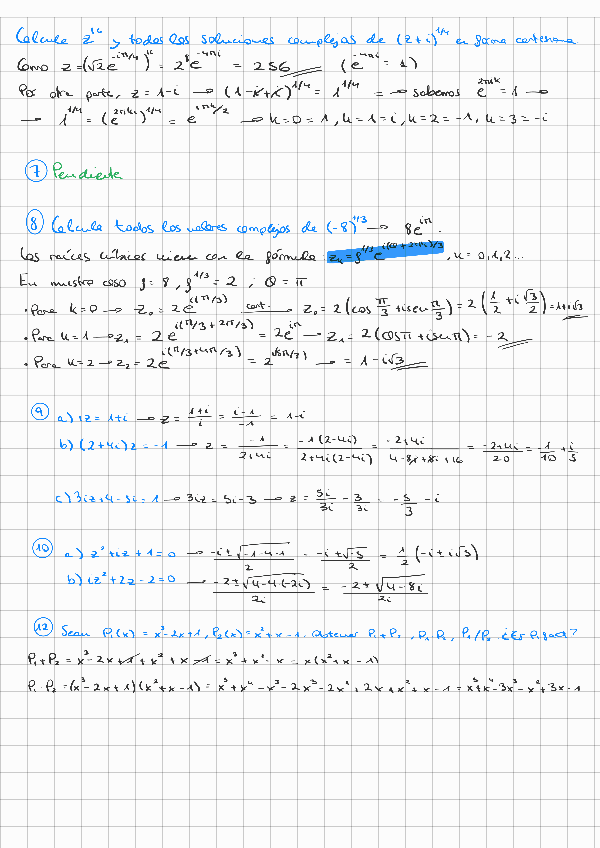 Calcule z^16 y todas las soluciones complejas de (z+i)^1/4 en forma cartesiana
Como z=(√2e^-iπ/4)^16 = 2^8 e^-4πi = 256 (e^-4πi = 1)
Por otra parte, z = 1-i → (1-i+i)^1/4 = 1^1/4 = → sabemos e^2πik = 1 →
→ 1^1/4 = (e^2πki)^1/4 = e^iπk/2 → k=0=1, k=1=i, k=2=-1, k=3=-i
7 Pendiente
8 Calcule todos los valores complejos de (-8)^1/3 → 8e^iπ.
Las raíces cúbicas vienen con la fórmula: z_k = ρ^1/3 e^i(θ+2πk)/3, k=0,1,2...
En nuestro caso ρ=8, ρ^1/3 = 2 ; θ = π
• Para k=0 → z₀ = 2e^i(π/3) cart. → z₀ = 2(cos π/3 + i sen π/3) = 2(1/2 + i √3/2) = 1+i√3
• Para k=1 → z₁ = 2e^i(π/3+2π/3) = 2e^iπ → z₁ = 2(cosπ + i senπ) = -2
• Para k=2 → z₂ = 2e^i(π/3+4π/3) = 2^i(5π/3) → = 1-i√3
9 a) iz = 1+i → z = 1+i/i = i-1/-1 = 1-i
b) (2+4i)z = -1 → z = -1/2+4i = -1(2-4i)/2+4i(2-4i) = -2+4i/4-8i+8i+16 = -2+4i/20 = -1/10 + i/5
c) 3iz+4-5i=1 → 3iz = 5i-3 → z = 5i/3i - 3/3i = -5/3 - i
10 a) z²+iz+1=0 → -i±√-1-4·1/2 = -i±√-5/2 = 1/2(-i±i√5)
b) iz²+2z-2=0 → -2±√4-4(-2i)/2i = -2±√4-8i/2i
12 Sean P₁(x) = x³-2x+1, P₂(x)=x²+x-1. Obtener P₁+P₂, P₁·P₂, P₁/P₂. ¿Es P₁ fact?
P₁+P₂ = x³-2x+1+x²+x-1 = x³+x²-x = x(x²+x-1)
P₁·P₂ = (x³-2x+1)(x²+x-1) = x⁵+x⁴-x³-2x³-2x²+2x+x²+x-1 = x⁵+x⁴-3x³-x²+3x-1